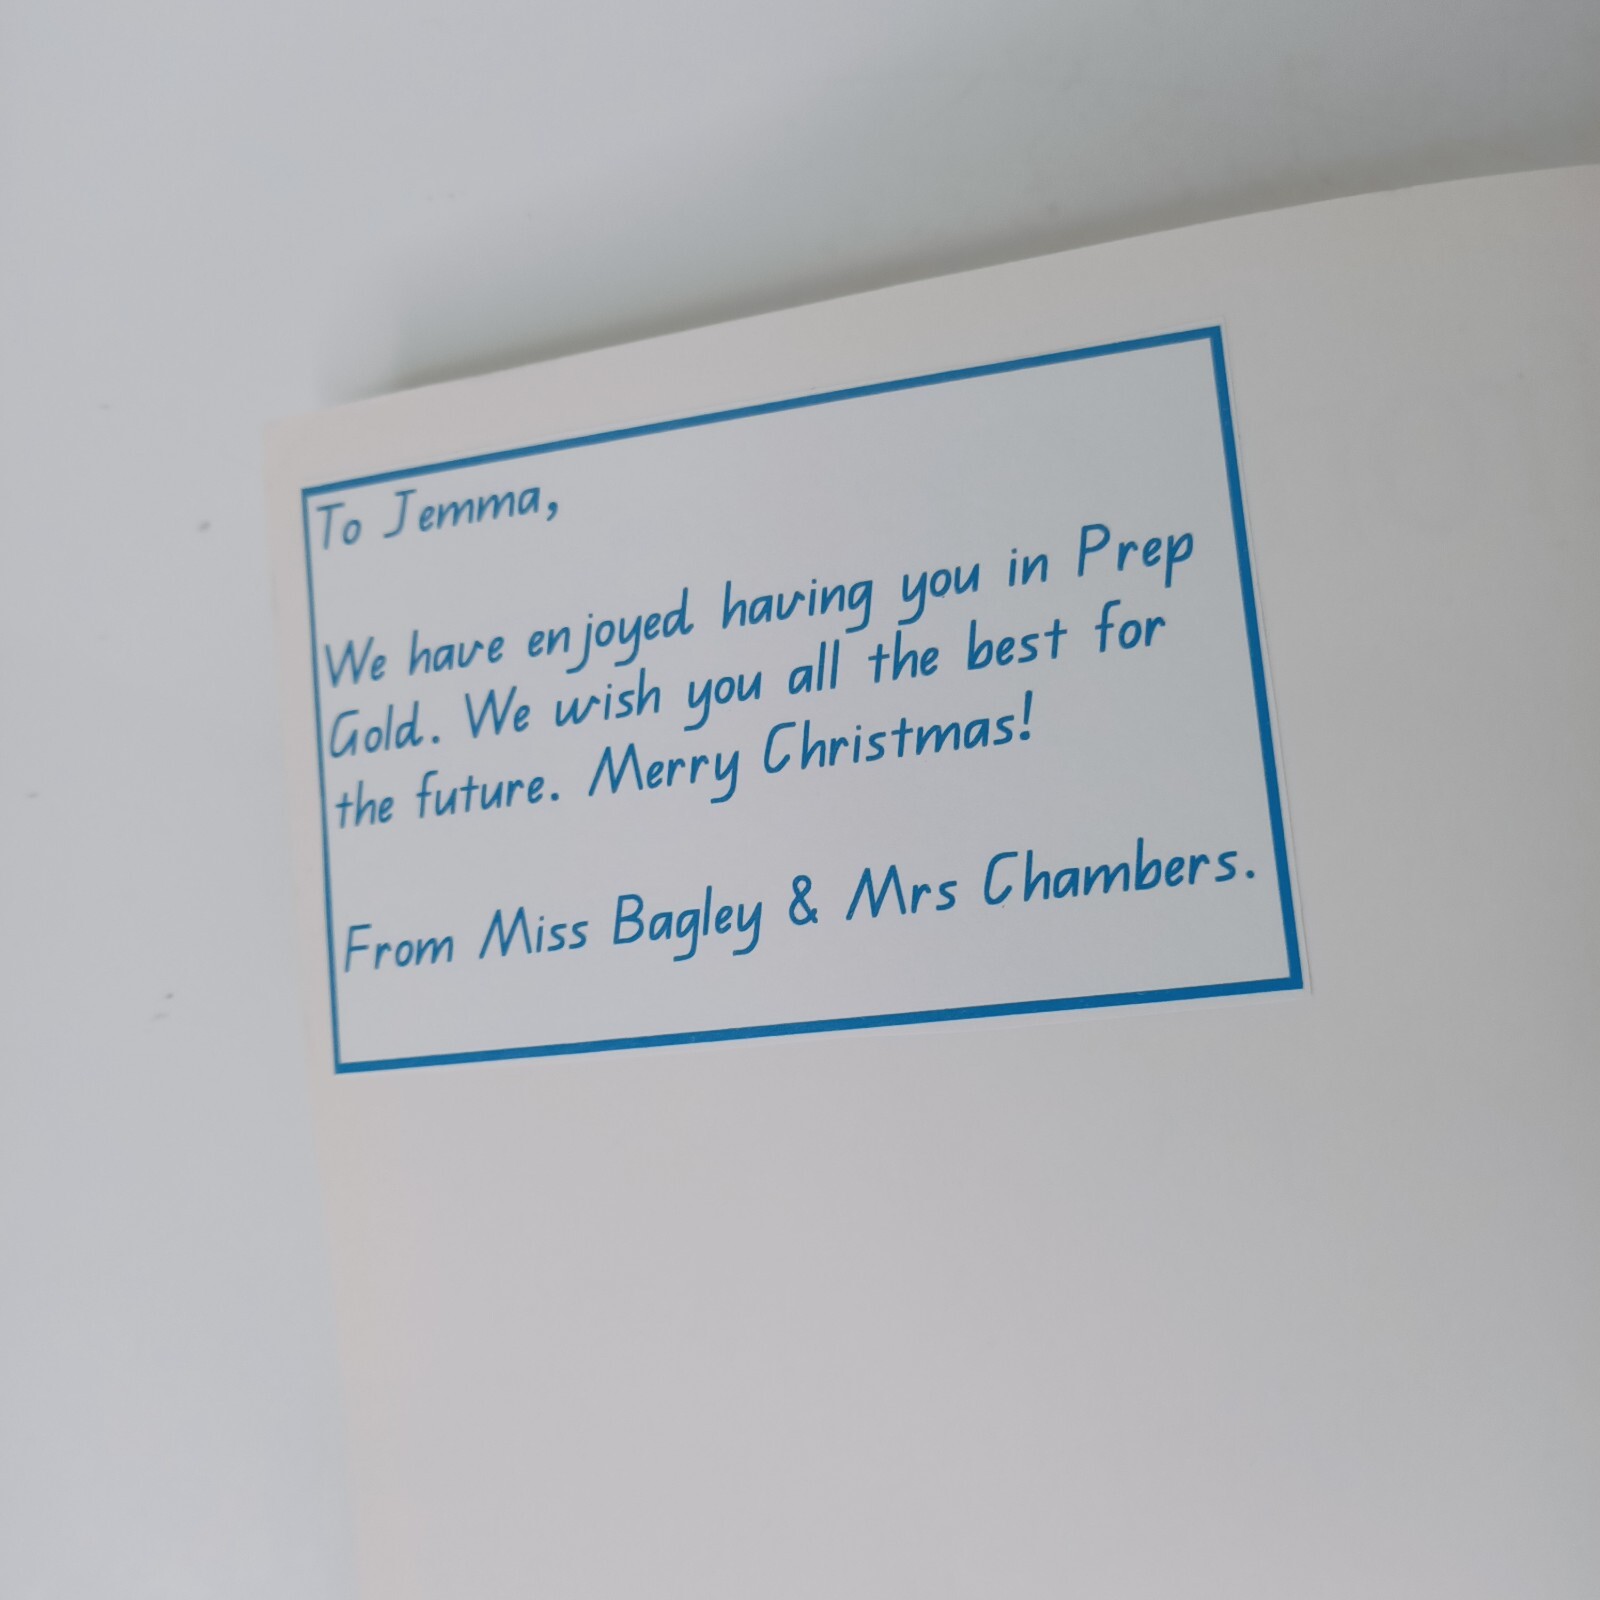 To Jemma,
We have enjoyed having you in Prep
Gold. We wish you all the best for
the future. Merry Christmas!
From Miss Bagley & Mrs Chambers.